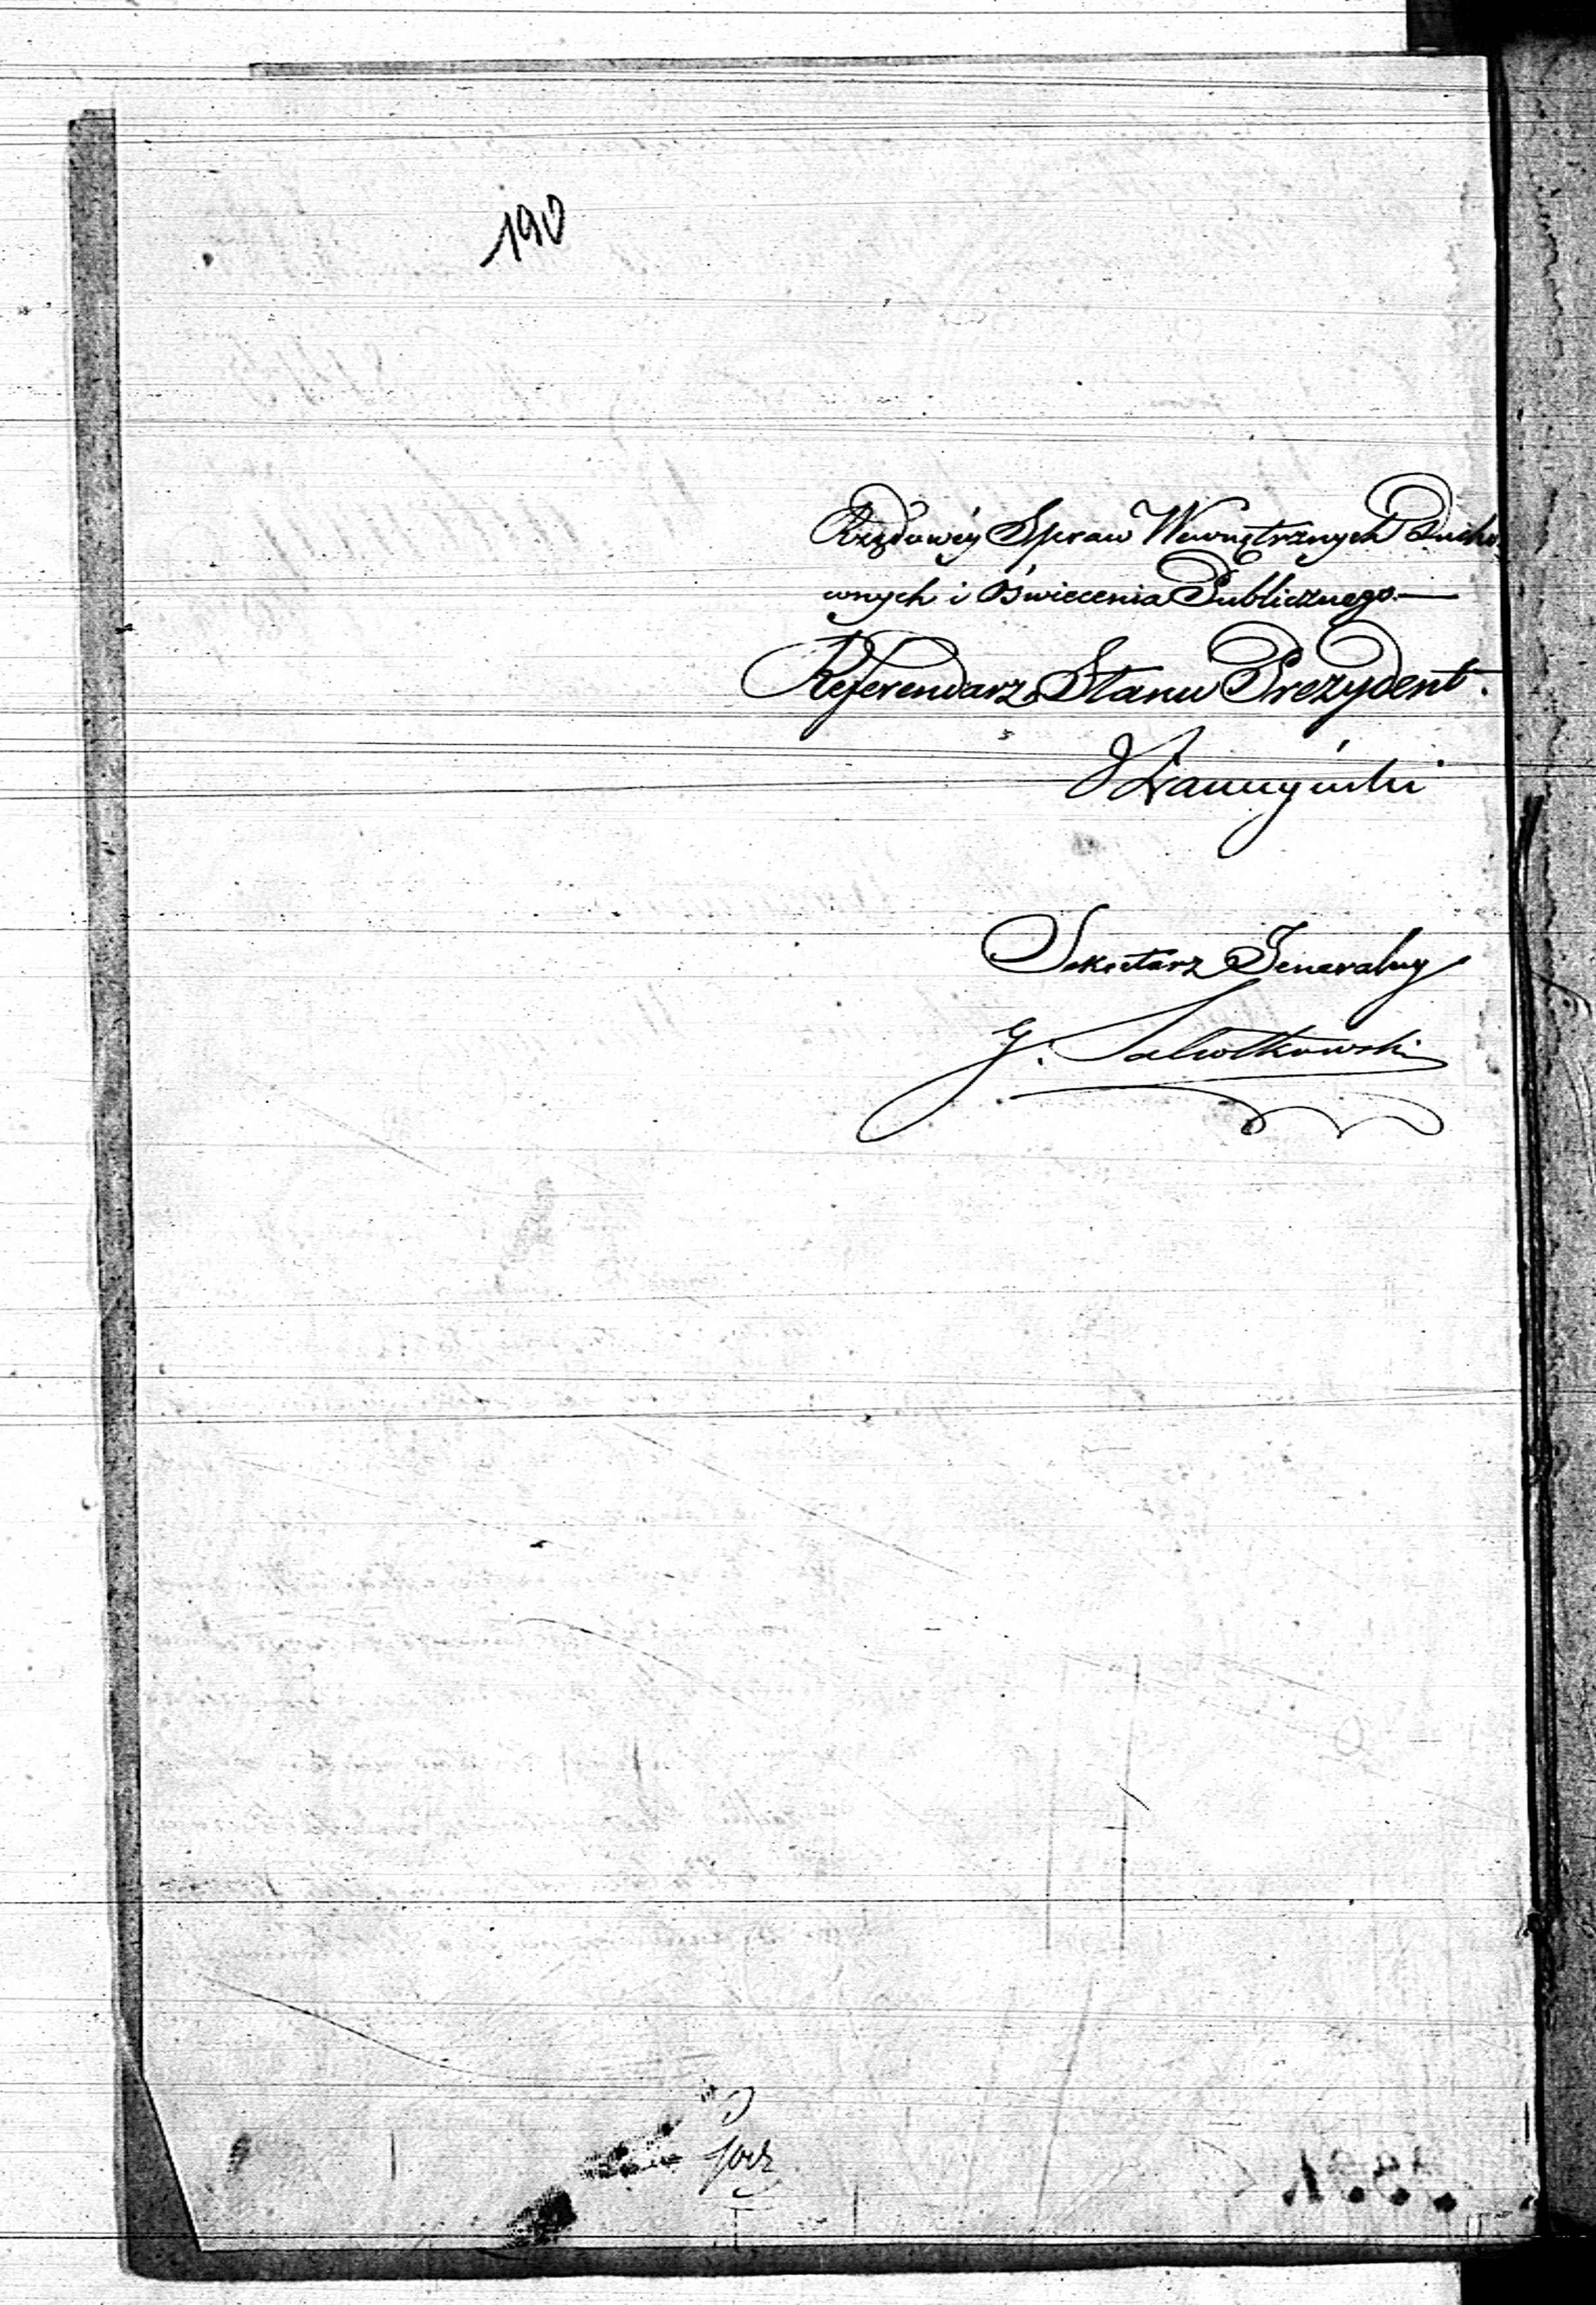 190
Rządowéy Spraw Wewnętrznych Ducho
wnych i Oświecenia Publicznego.—
Referendarz Stanu Prezydent.
Sekretarz Jeneralny